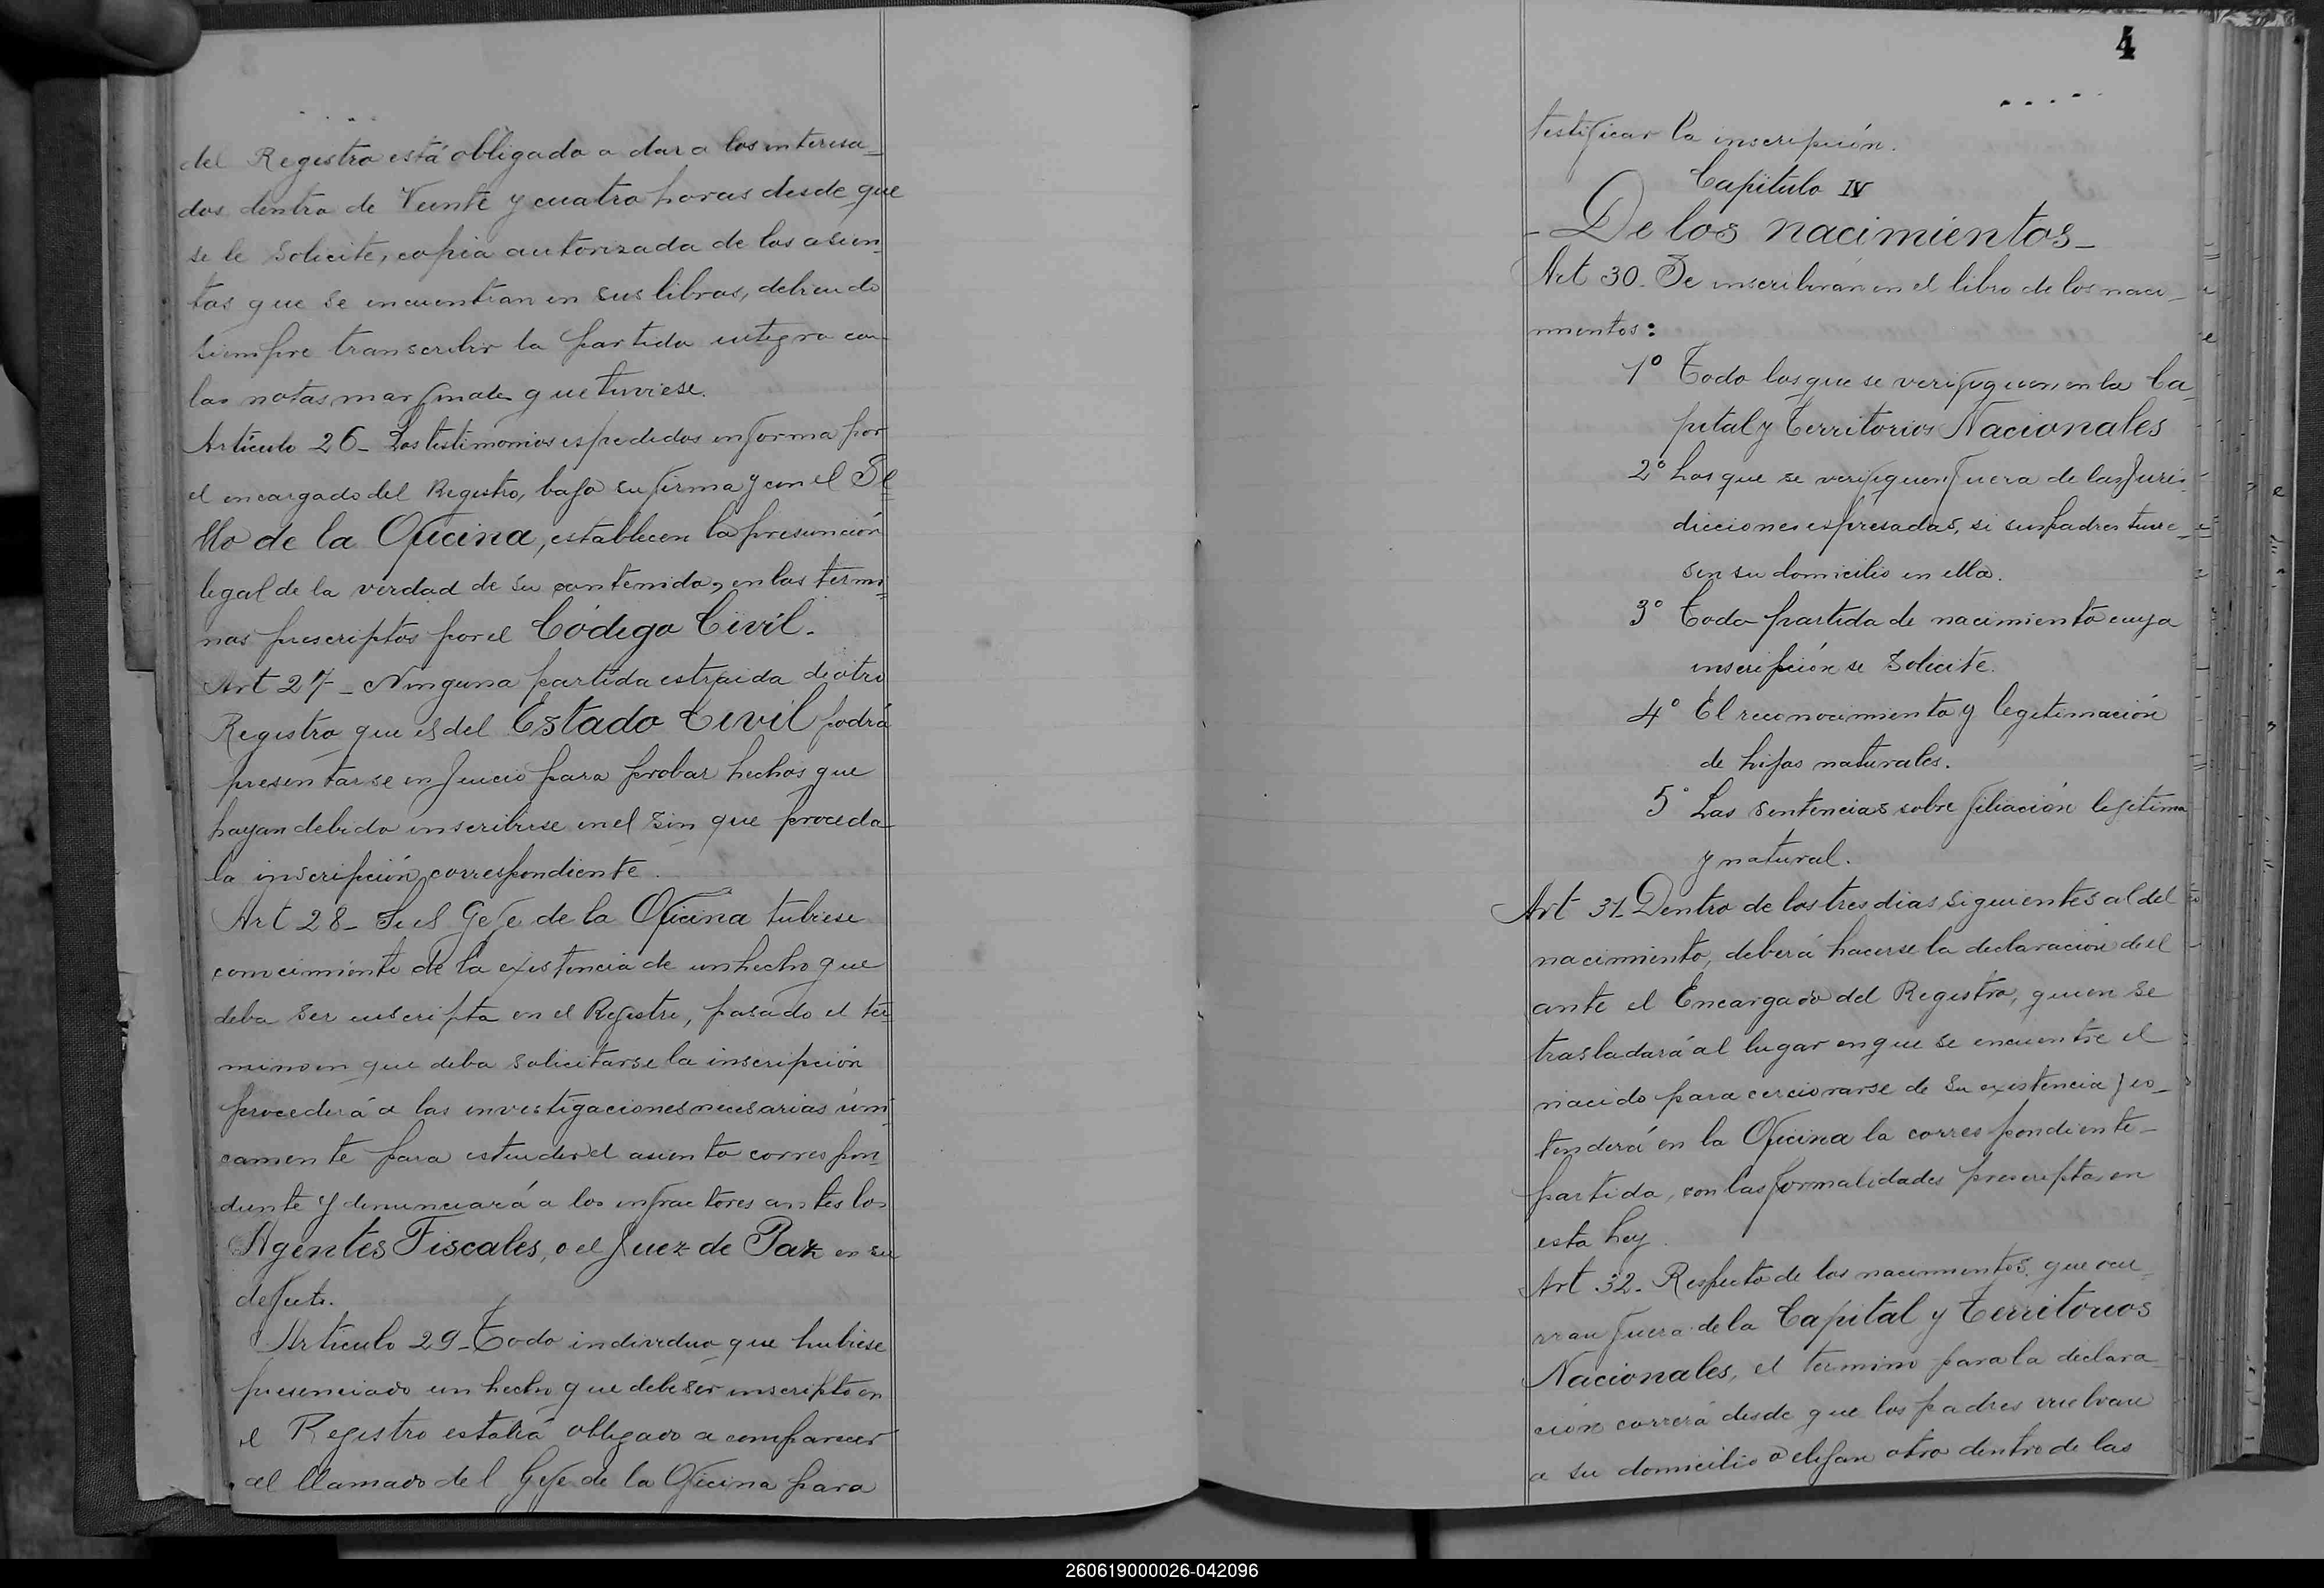 del Registro está obligado a dar a los interesa=
dos dentro de Veinte y cuatro horas desde que
se le solicite, copia autorizada de los asien=
tos que se encuentran en sus libros, debiendo
siempre transcribir la partida integra con
las notas marginales que tuviese.
Artículo 26_ Los testimonios espedidos en forma por
el encargado del Registro, bajo su firma y con el Se=
llo de la Oficina, establecen la presunción
legal de la verdad de su contenido, en los termi=
nos prescriptos por el Código Civil.
Art 27_ Ninguna partida estraida de otro
Registro que el del Estado Civil podrá
presentarse en Juicio para probar hechos que
hayan debido inscribirse en el sin que proceda
la inscripción correspondiente.
Art 28_ Si el Gefe de la Oficina tubiese
conocimiento de la existencia de un hecho que
deba ser inscripto en el Registro, pasado el tér=
mino en que deba solicitarse la inscripción
procederá a las investigaciones necesarias úni=
camente para estender el asiento correspon=
diente y denunciará a los infractores antes los
Agentes Fiscales, o el Juez de Paz en su
defecto.
Artículo 29_ Todo individuo que hubiese
presenciado un hecho que debe ser inscripto en
el Registro estará obligado a comparecer
al llamado del Gefe de la Oficina para
4
testificar la inscripción.
Capitulo IV
- De los nacimientos_
Art 30_ Se inscribirán en el libro de los naci_
mientos:
1º Todo los que se verifiquen en la Ca_
pital y Territorios Nacionales
2º Los que se verifiquen fuera de las Juris_
dicciones espresadas, si sus padres tuvie_
sen su domicilio en ella.
3º Toda partida de nacimiento cuya
inscripción se solicite.
4º El reconocimiento y legitimación
de hijos naturales.
5º Las sentencias sobre filiación legitima
y natural.
Art 31_ Dentro de los tres dias siguientes al del
nacimiento, deberá hacerse la declaración de el
ante el Encargado del Registro, quien se
trasladará al lugar en que se encuentre el
nacido para cercionarse de su existencia y es_
tenderá en la Oficina la correspondiente_
partida, con las formalidades prescriptas en
esta Ley.
Art 32_ Respecto de los nacimientos que ocu_
rran fuera de la Capital y Territorios
Nacionales, el termino para la declara_
ción correrá desde que los padres vuelvan
a su domicilio o elijan otro dentro de las
260619000026-042096